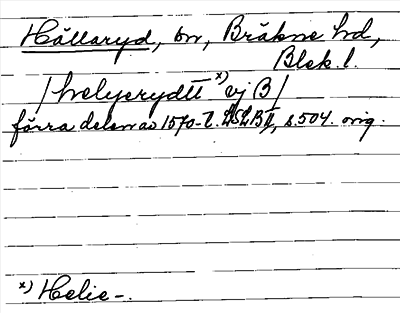 Hällaryd, sn, Bräkne hd,
Blek. l.
/helyerydtt x) ej B/
förra delen av 1570-t. s. 504. orig.
x) Helie-.